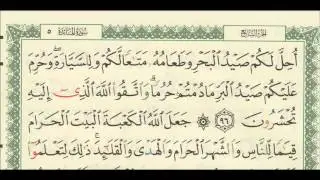 الجزء السابع سورة المائدة ٥
أُحِلَّ لَكُمْ صَيْدُ الْبَحْرِ وَطَعَامُهُ مَتَاعًا لَّكُمْ وَلِلسَّيَّارَةِ وَحُرِّمَ
عَلَيْكُمْ صَيْدُ الْبَرِّ مَا دُمْتُمْ حُرُمًا وَاتَّقُوا اللَّهَ الَّذِي إِلَيْهِ
تُحْشَرُونَ ٩٦ جَعَلَ اللَّهُ الْكَعْبَةَ الْبَيْتَ الْحَرَامَ
قِيَامًا لِّلنَّاسِ وَالشَّهْرَ الْحَرَامَ وَالْهَدْيَ وَالْقَلَائِدَ ذَلِكَ لِتَعْلَمُوا